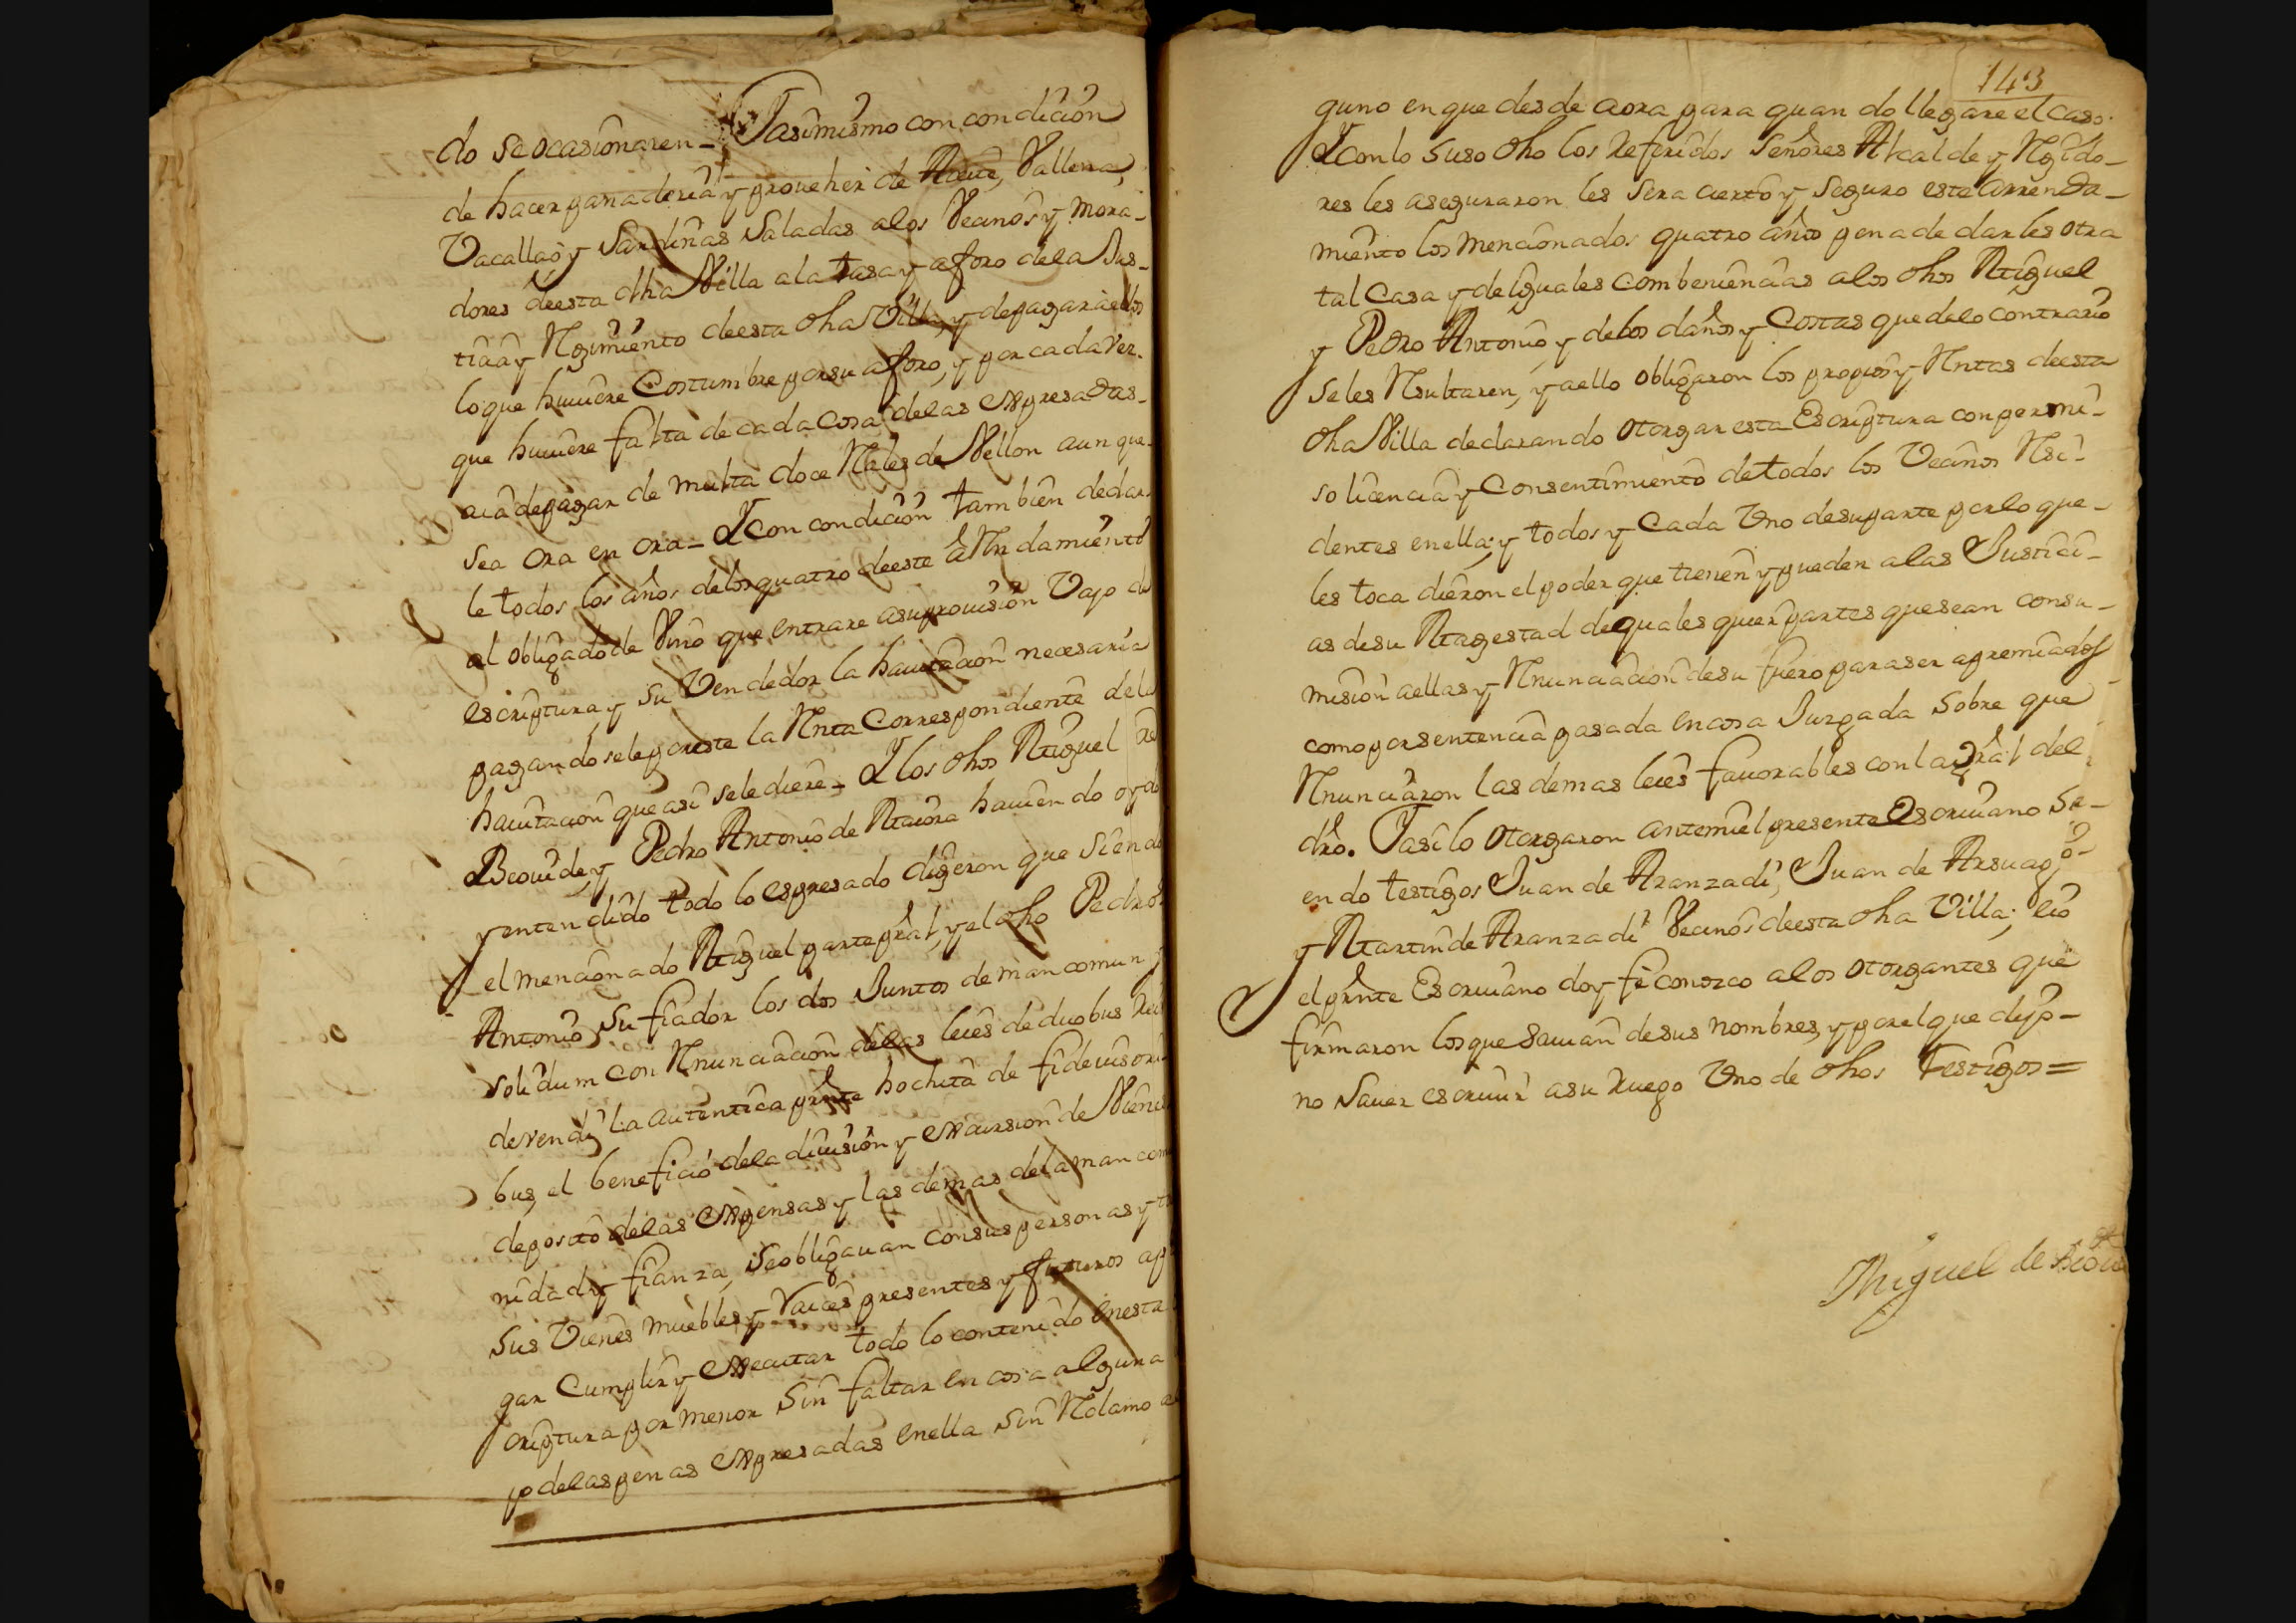 do se ocasionaren_ Y asimismo con condicion
de hacer panaderia y proueher de Aceite, Vallena,
Vacallao y Sardinas Saladas a los Vecinos y mora-
dores de esta dha Villa a la tasa y aforo de la Jus-
ticia y Regimiento de esta dha Villa, y de pagar a ellos
lo que huuiere Costumbre por su aforo, y por cada vez
que huuiere falta de cada cosa de las expresadas
aia de pagar de multa doce Rales de Vellon aunque
sea ora en ora_ Y con condicion tambien de dar
le todos los años de los quatro de este aRendamiento
al obligado de Vino que entrare a su prouision Vajo de
escriptura y su Vendedor la hauitacion necesaria
pagandosele por este la Renta Correspondiente de la
hauitacion que asi se le diere_ Y los dhos Miguel de
Beouide, y Pedro Antonio de Maiora hauiendo oydo
y entendido todo lo espresado digeron que siendo
el mencionado Miguel parte pral, y el dho Pedro
Antonio su fiador los dos Juntos de mancomun
solidum con Renunciacion de las leies de duobus
devendi la autentica prnte hochita de fidevisori
bus, el beneficio de la diuision y excursion de Vienes
deposito de las expensas y las demas de la mancomu
nidad y fianza, se obligauan con sus personas y
sus Vienes muebles y raices presentes y futuros a
gar Cumplir y executar todo lo contenido en esta
criptura por menor sin faltar en cosa alguna
jo de las penas expresadas en ella sin Reclamo al
143
guno en que desde aora para quando llegare el caso.
Y con lo suso dho los referidos Señores Alcalde y Regido-
res les aseguraron les sera cierto y seguro este arrenda-
miento los mencionados quatro años pena de darles otra
tal Casa y de iguales combeniencias a los dhos Miguel
y Pedro Antonio, y de los daños y Costas que de lo contrario
se les Resultaren, y a ello obligaron los propios y Rentas de esta
dha Villa declarando otorgar esta Escriptura con permi-
so licencia y Consentimiento de todos los Vecinos Resi-
dentes en ella; y todos y Cada Uno de su parte por lo que
les toca dieron el poder que tienen y pueden a las Justici-
as de su Magestad de quales quier partes que sean con su-
mision a ellas y Renunciacion de su fuero para ser apremiados
como por sentencia pasada en cosa Juzgada sobre que
Renunciaron las demas leies fauorables con la gral del
dro. Y asi lo otorgaron ante mi el presente Escriuano si-
endo testigos Juan de Aranzadi, Juan de Arsuaga
y Martin de Aranzadi Vecinos de esta dha Villa; e io
el prnte Escriuano doy fe conozco a los otorgantes que
firmaron los que sauian de sus nombres, y por el que dijo
no sauer escriuir a su ruego Uno de dhos Testigos =
Miguel de Beoui